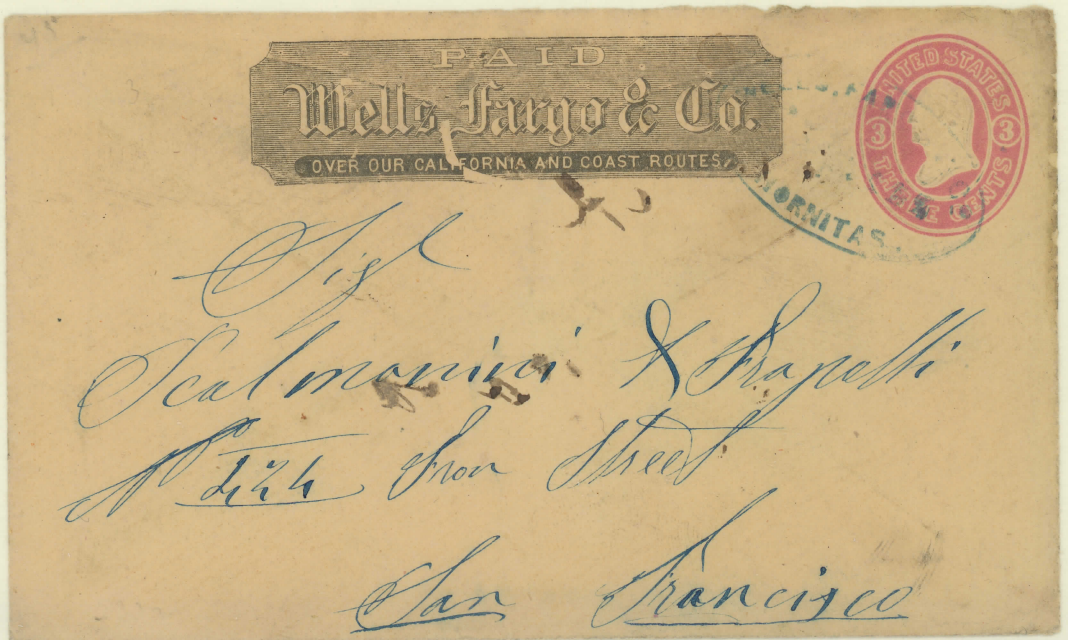 PAID
Wells, Fargo & Co.
OVER OUR CALIFORNIA AND COAST ROUTES.
UNITED STATES
3 3
THREE CENTS
WELLS, FAR
ORNITAS
Sigl
Scalmanini & Frapolli
No 424 Fron Street
San Francisco